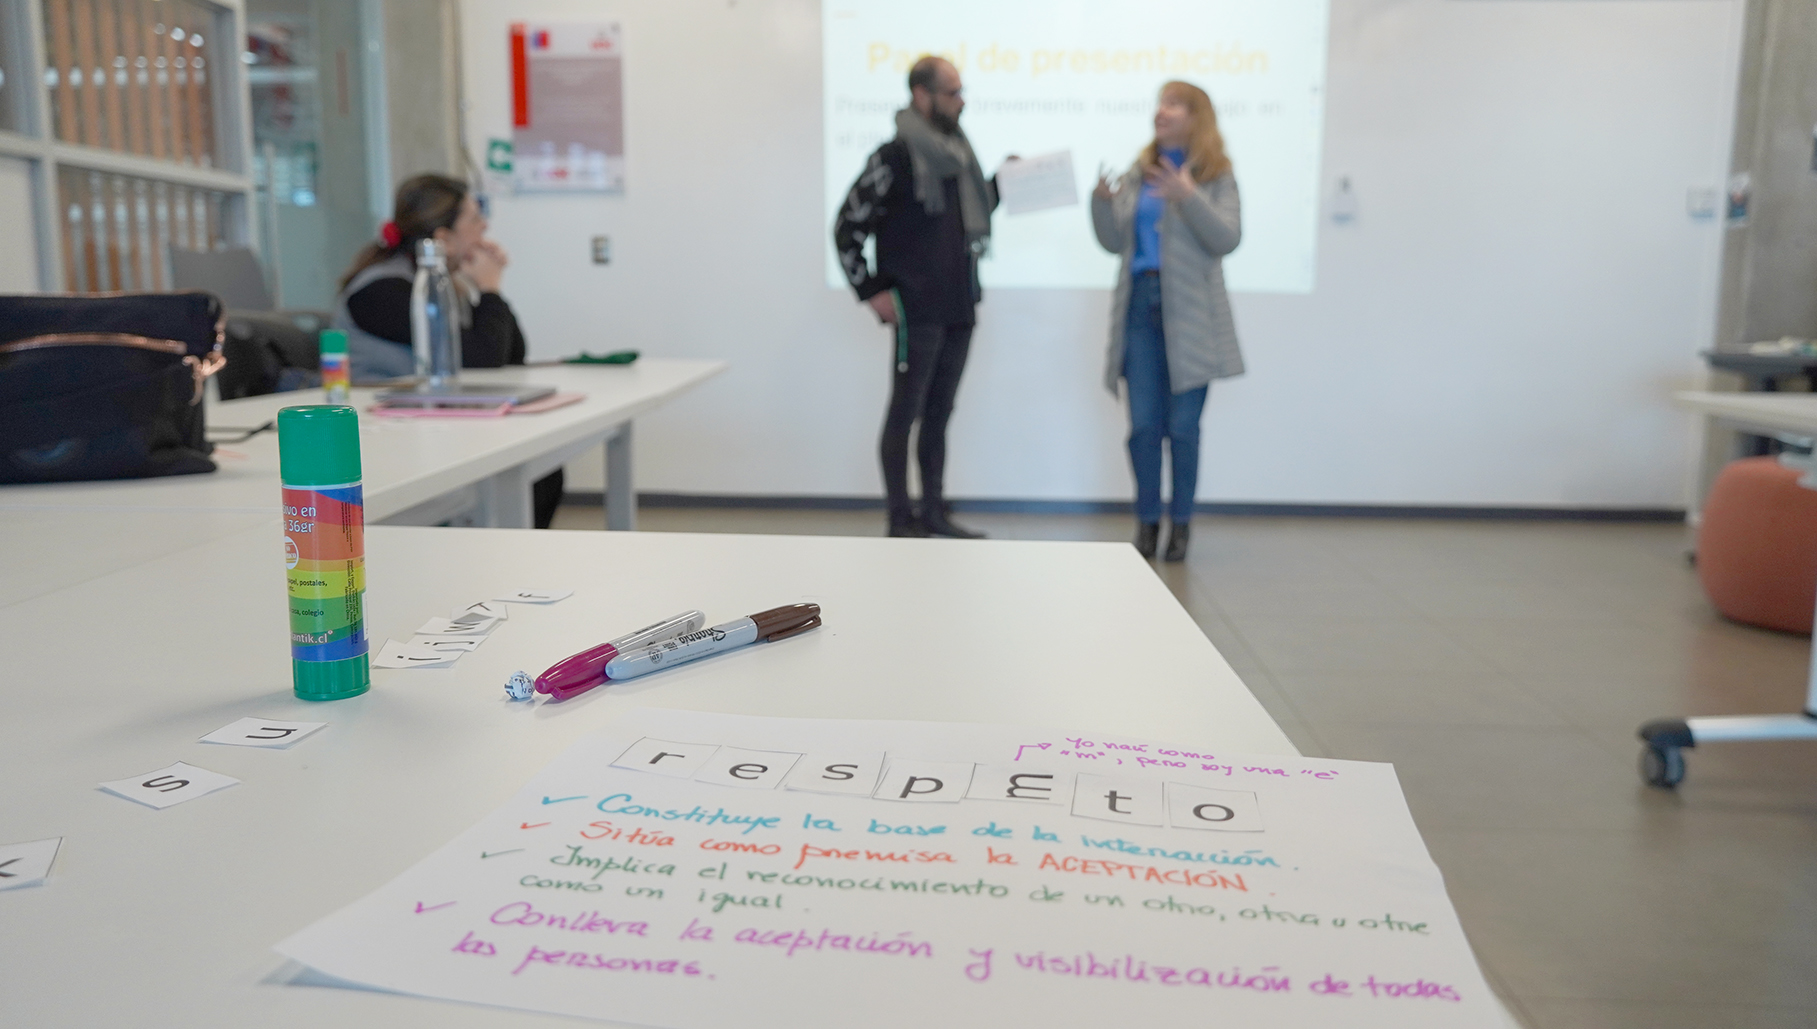 Panel de presentación
brevemente
ivo en
36gr
papel, postales,
etc.
colegio
antik.cl
Sharpie
i
j
w
n
s
k
Yo nací como
"m", pero soy una "e"
r e s p m t o
✓ Constituye la base de la interacción.
✓ Sitúa como premisa la ACEPTACIÓN.
✓ Implica el reconocimiento de un otro, otra u otre
como un igual.
✓ Conlleva la aceptación y visibilización de todas
las personas.